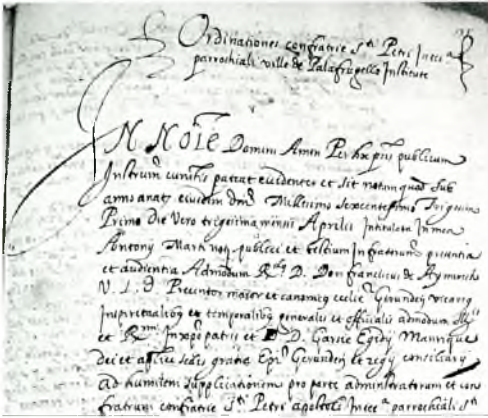 Ordinationes confratrie Sti Petri in ecca
parrochiali ville de Palafrugello Institute
IN NOIE Domini Amen Per hoc pns publicum
Instrum cunctis pateat evidenter et sit notum quod sub
anno a natte eiusdem Dni Millesimo sexcentesimo Trigesimo
Primo die vero trigesima mensis Aprilis Intitulata In mea
Antony Marti not publici et testium infratrum presentia
et audientia Admodum Rdi D. Don Franciscus de Aymerich
V. I. D. Precentor maior et canonicus ecclie Gerunden vicarius
In spiritualibus et temporalibus generalis et officialis admodum Illi
et Rmi In xpo patris et D D. Garsie Egidy Manrique
dei et aplice sedis gratia Epi Gerunden et regy consiliary
ad humilem supplicationem pro parte administratorum et con
fratrum confratrie Sti Petri apostoli In ecca parrochiali Sti